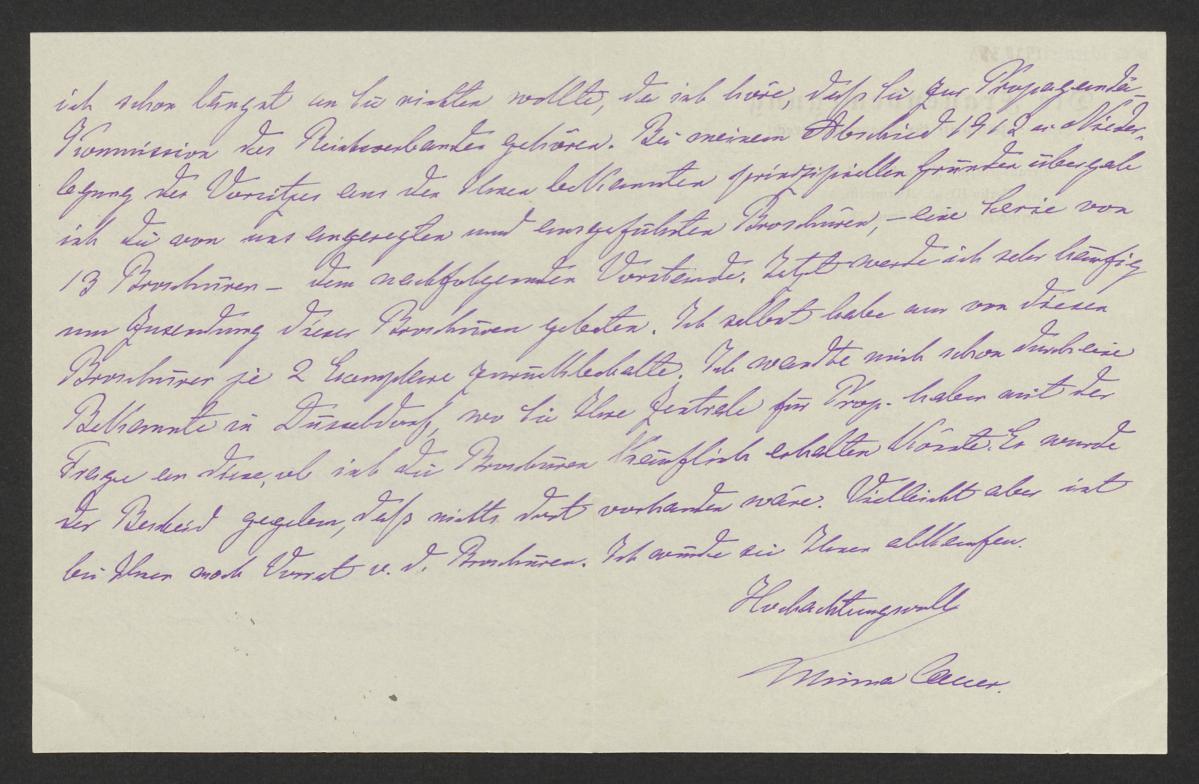 ich schon längst an Sie richten wollte, da ich höre daß Sie zur Propaganda-
Kommission des Reichsverbandes gehören. Bei meinem Abschied 1912 u. Nieder-
legung des Vorsitzes aus den Ihnen bekannten prinzipiellen Gründen übergab
ich die von uns angeregten und ausgeführten Broschüren, – eine Serie von
13 Broschüren – dem nachfolgenden Vorstande. Jetzt werde ich sehr häufig
um Zusendung dieser Broschüren gebeten. Ich selbst habe nur von diesen
Broschüren je 2 Exemplare zurückbehalte. Ich wandte mich schon durch eine
Bekannte in Düsseldorf, wo Sie Ihre Zentrale für Prop. haben mit der
Frage an diese, ob ich die Broschüren käuflich erhalten könnte. Es wurde
der Bescheid gegeben, daß nichts dort vorhanden wäre. Vielleicht aber ist
bei Ihnen noch Vorrat v. d. Broschüren. Ich würde sie Ihnen abkaufen.
Hochachtungsvoll
Minna Cauer.